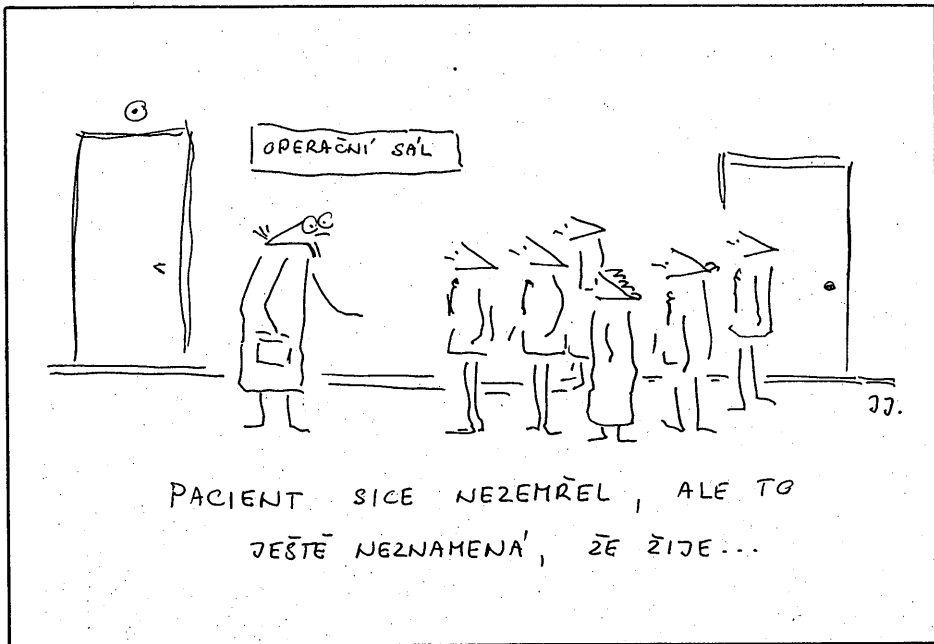 OPERAČNÍ SÁL
JJ.
PACIENT SICE NEZEMŘEL, ALE TO
JEŠTĚ NEZNAMENÁ, ŽE ŽIJE...